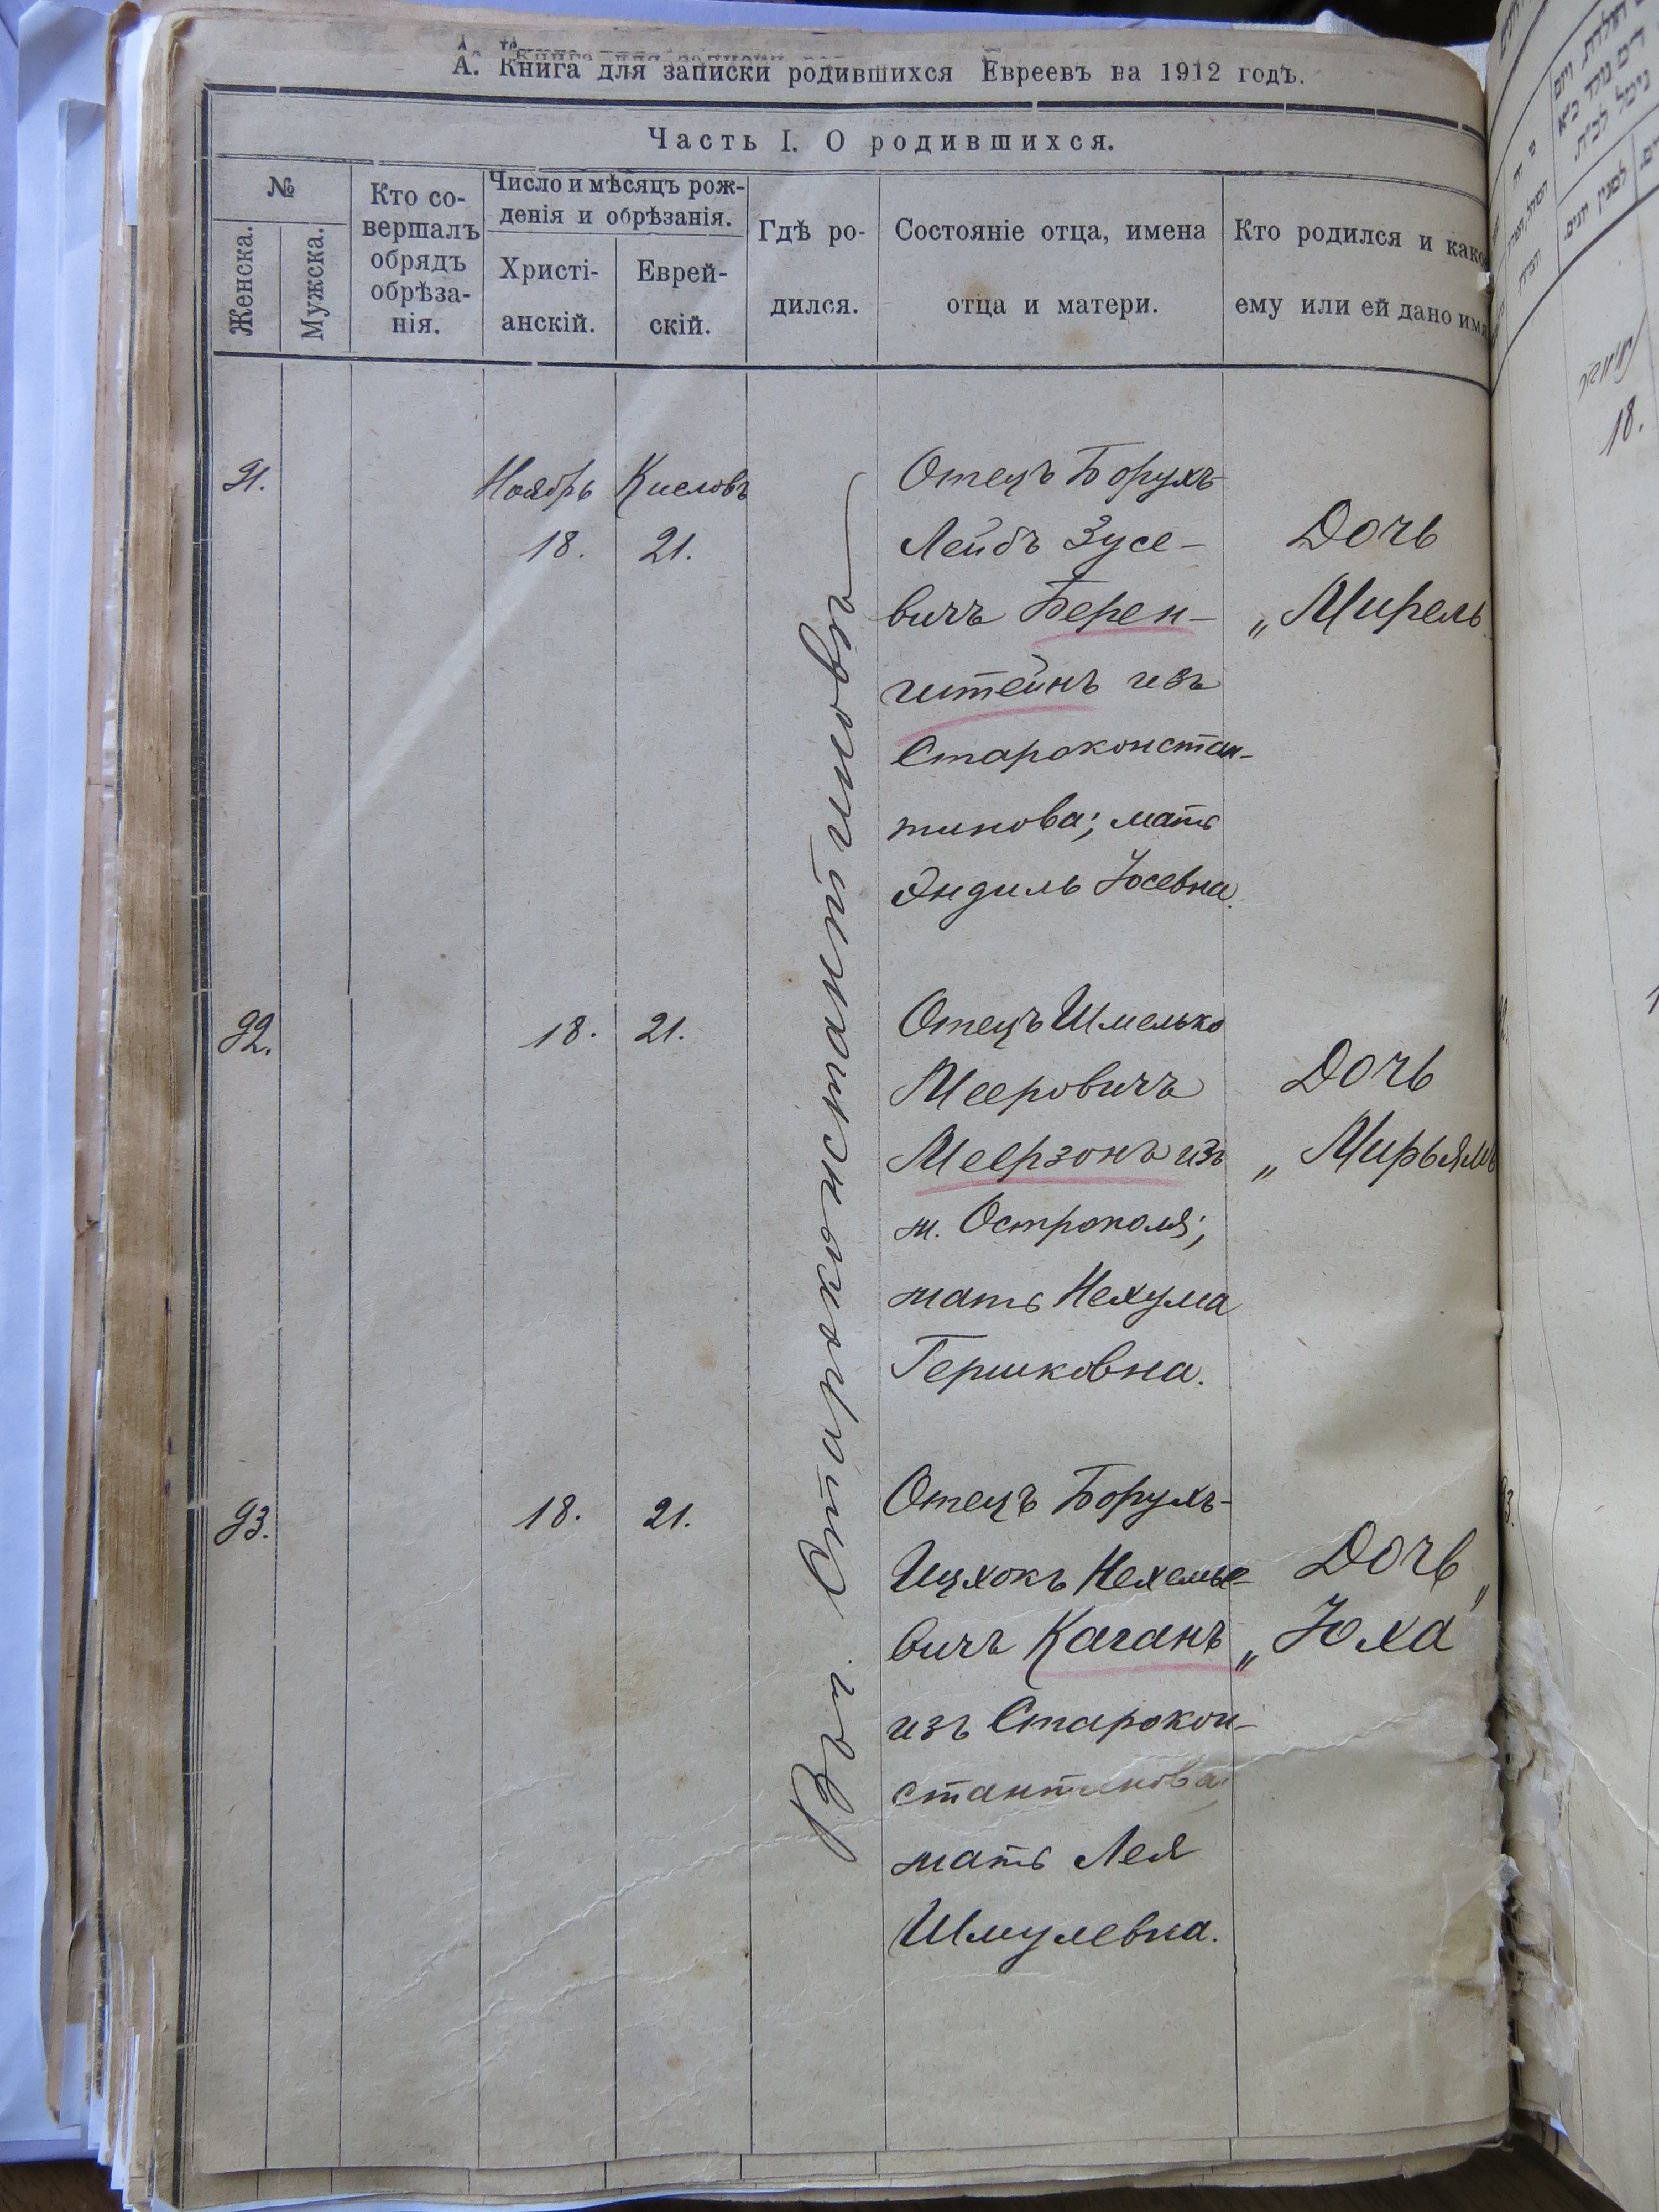 А. Книга для записки родившихся Евреевъ на 1912 годъ.
Часть I. О родившихся.
№
Женска.
Мужска.
Кто со-
вершалъ
обрядъ
обрѣза-
нія.
Число и мѣсяцъ рож-
денія и обрѣзанія.
Христі-
анскій.
Еврей-
скій.
Гдѣ ро-
дился.
Состояніе отца, имена
отца и матери.
Кто родился и како
ему или ей дано имя
Въ г. Староконстантиновѣ
91.
Ноябрь Кисловъ
18. 21.
Отецъ Борухъ-
Лейбъ Зусе-
вичъ Берен-
штейнъ изъ
Староконстан-
тинова; мать
Эндиль Юсевна.
Дочь
„Мирель
92.
18. 21.
Отецъ Шмелько
Мееровичъ
Меерзонъ изъ
м. Острополя;
мать Нехума
Гершковна.
Дочь
„Мирьямъ
93.
18. 21.
Отецъ Борухъ-
Ицхокъ Нехемье-
вичъ Каганъ
изъ Старокон-
стантинова
мать Лея
Шмулевна.
Дочь
„Юха"
18.